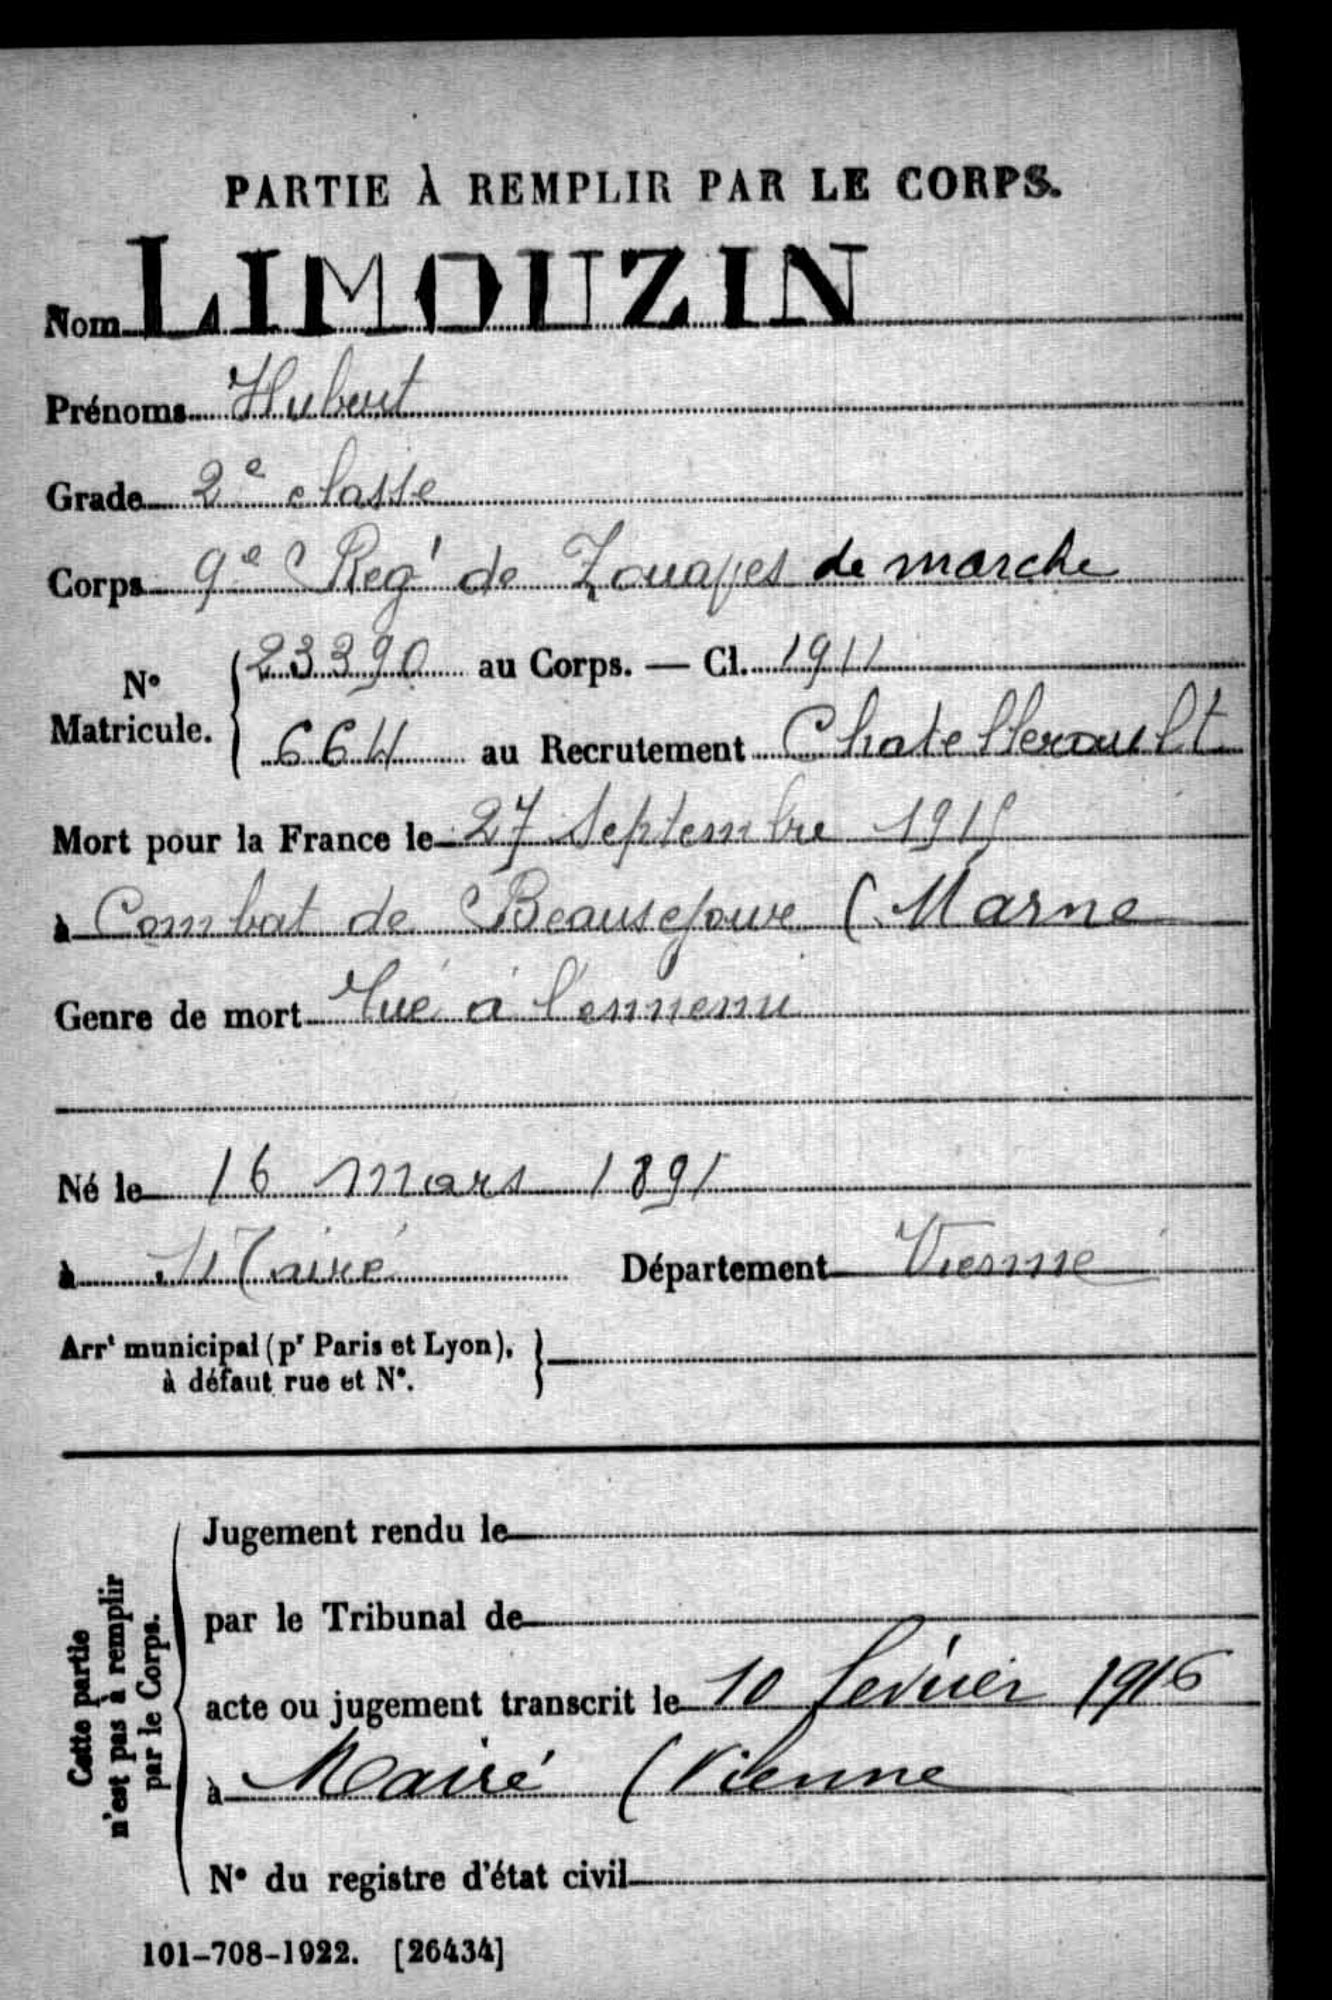 PARTIE À REMPLIR PAR LE CORPS.
Nom LIMOUZIN
Prénoms Hubert
Grade 2e classe
Corps 9e Regt de Zouaves de marche
No Matricule. { 23390 au Corps. — Cl. 1911
664 au Recrutement Chatellerault
Mort pour la France le 27 Septembre 1915
à Combat de Beausejour (Marne
Genre de mort Tué à l'ennemi
Né le 16 mars 1891
à Mairé Département Vienne
Arrt municipal (pr Paris et Lyon), }
à défaut rue et No.
Cette partie
n'est pas à remplir
par le Corps.
Jugement rendu le
par le Tribunal de
acte ou jugement transcrit le 10 fevrier 1916
à Mairé (Vienne
No du registre d'état civil
101-708-1922. [26434]